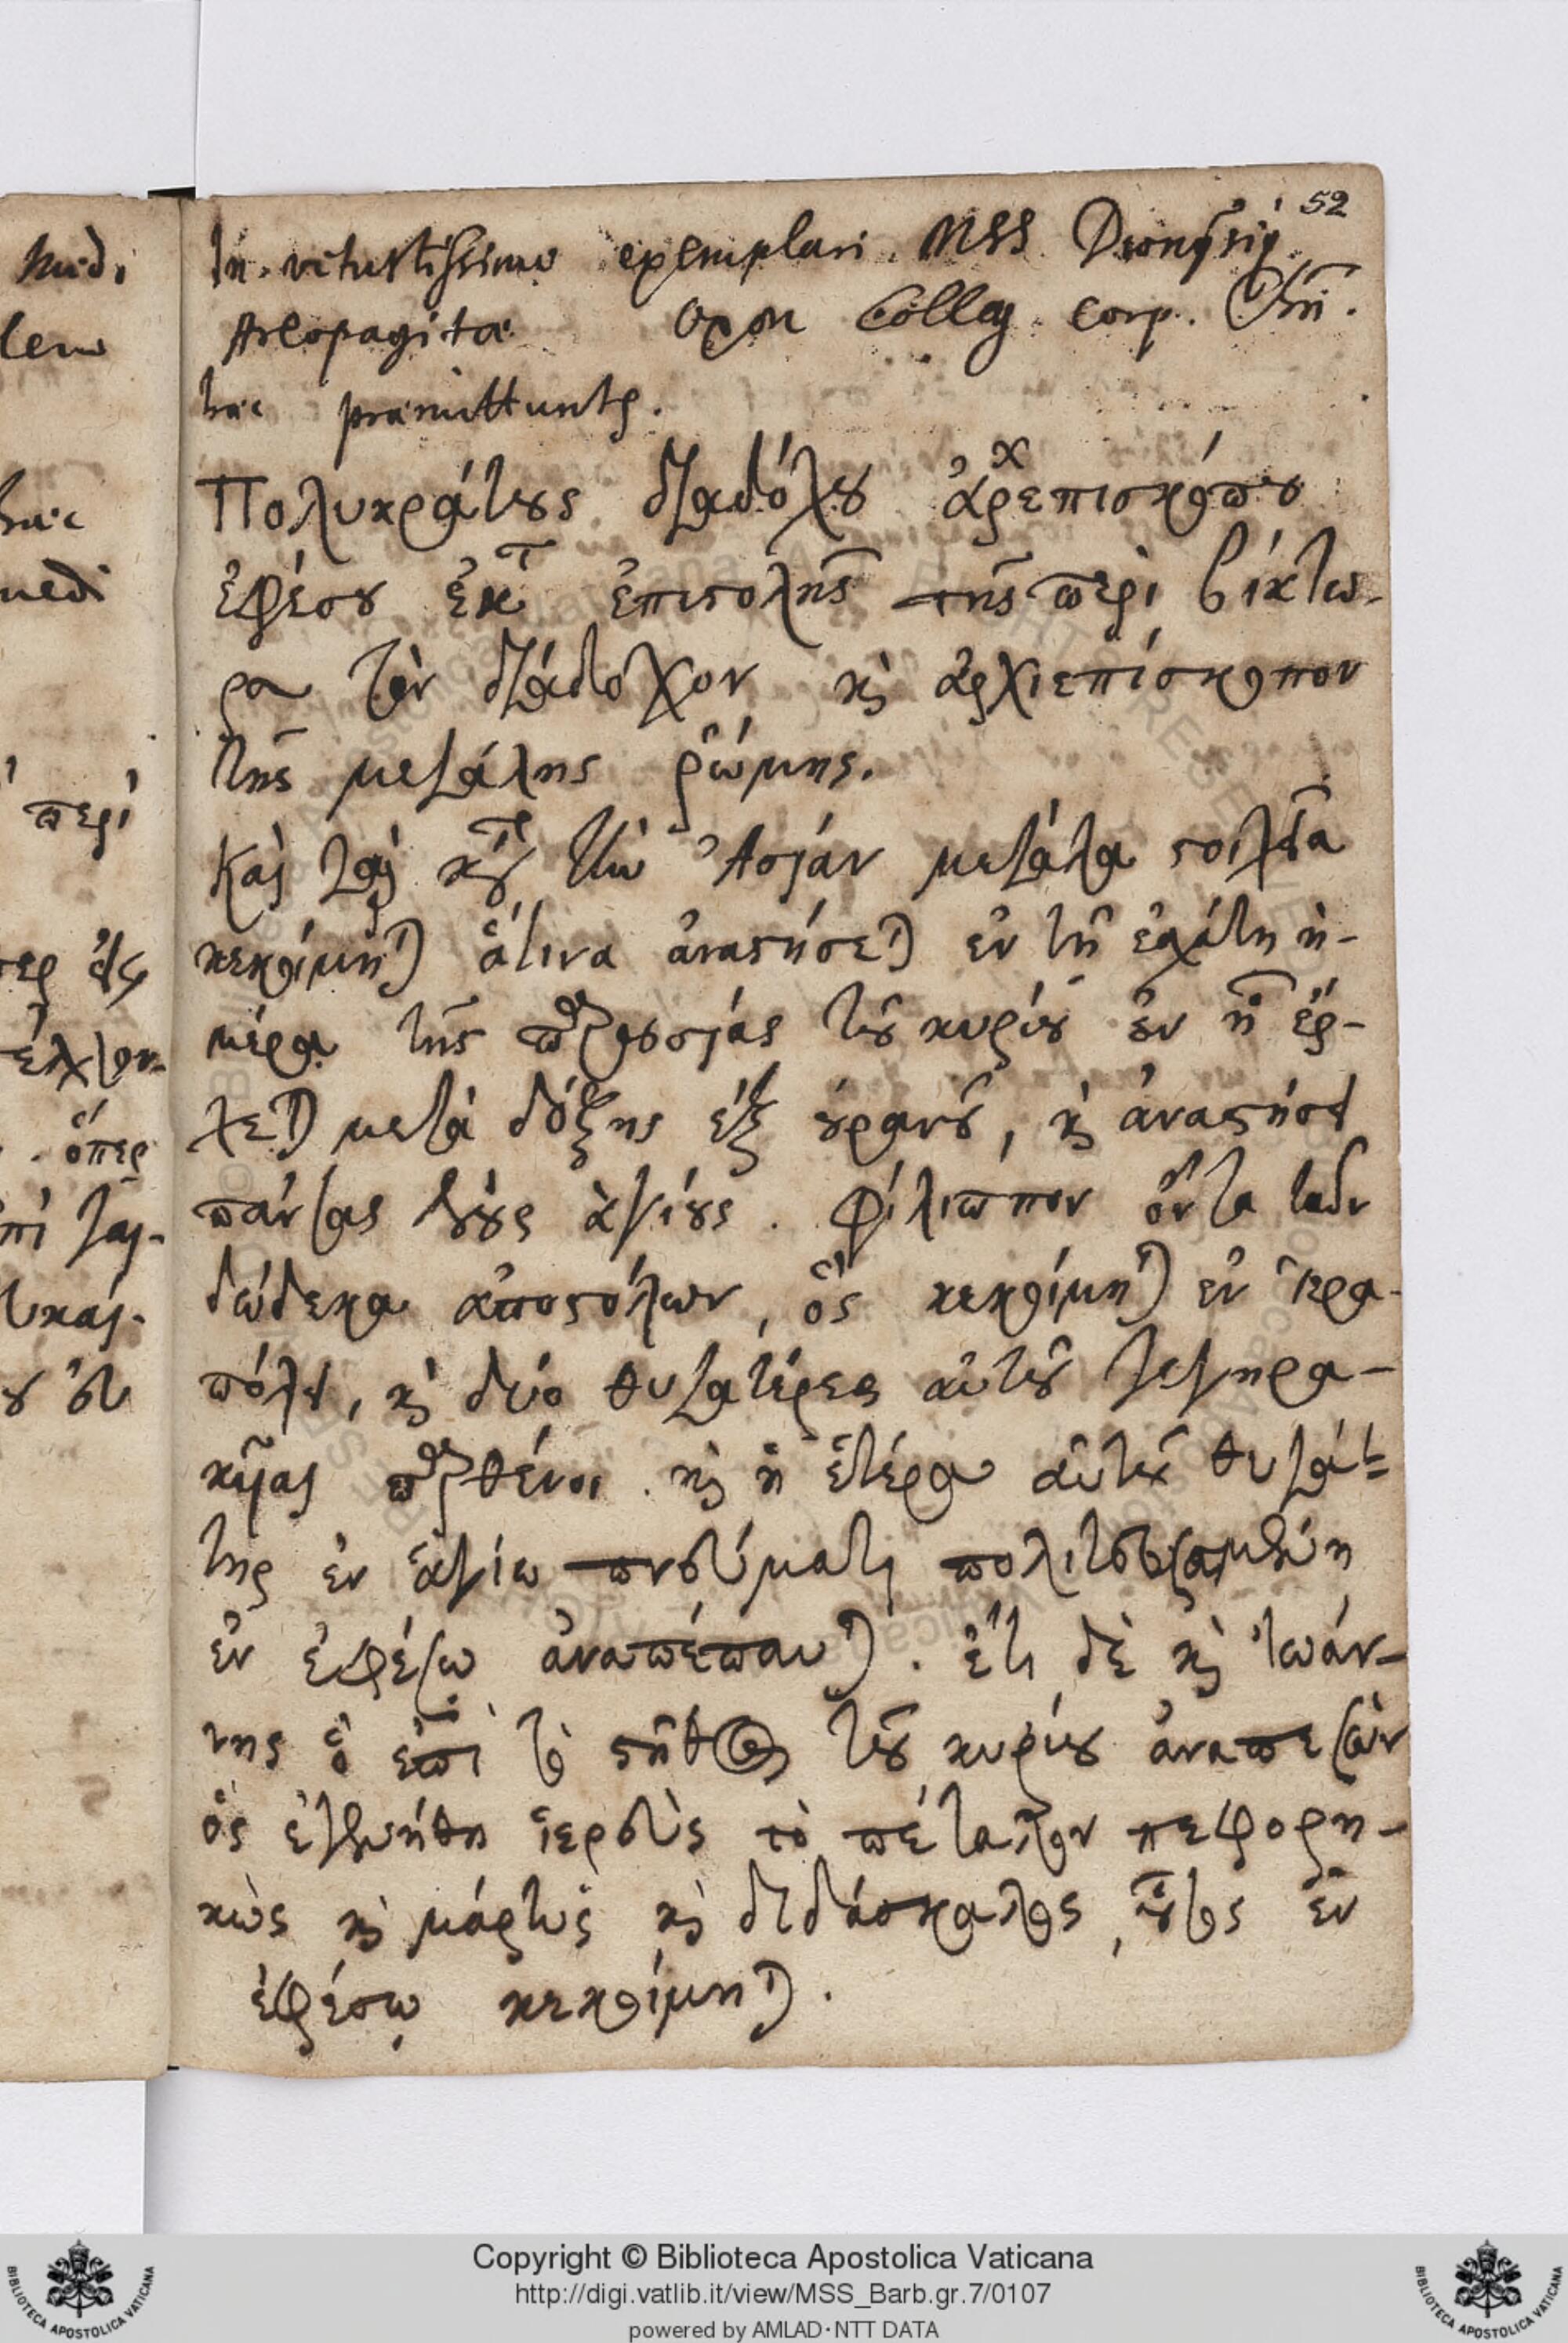 52
In vetustissimo exemplari MSS Dionysij
Areopagitæ Oxon Colleg. corp. Chri.
hæc præmittuntr.
Πολυκράτους διαδόχου ἀρχεπισκόπου
ἐφέσου ἐκ τ ἐπιστολῆς τῆς περὶ βίκτω-
ρα τὸν διάδοχον κὶ ἀρχιεπίσκοπον
τῆς μεγάλης ῥώμης.
Καὶ γὰρ κατ τὴν Ἀσίαν μεγάλα στοιχεῖα
κεκοίμηται ἅτινα ἀναστήσεται ἐν τῇ ἐσχάτῃ ἡ-
μέρα τῆς παρουσίας τοῦ κυρίου ἐν ᾗ ἔρ-
χεται μετὰ δόξης ἐξ οὐρανοῦ, κὶ ἀναστήσει
πάντας τοὺς ἁγίους. Φίλιππον ὄντα τῶν
δώδεκα ἀποστόλων, ὃς κεκοίμηται ἐν ἱερα-
πόλει, κὶ δύο θυγατέρες αὐτοῦ γεγηρα-
κῖαι παρθένοι. κὶ ἡ ἑτέρα αὐτοῦ θυγά-
της ἐν ἁγίω πνεύματι πολιτευσαμένη
ἐν ἐφέσω ἀναπέπαυται. ἔτι δὲ κὶ Ἰωάν-
νης ὁ ἐπὶ τὸ στῆθος τοῦ κυρίου ἀναπεσὼν
ὃς ἐγενήθη ἱερεὺς τὸ πέταλον πεφορη-
κὼς κὶ μάρτυς κὶ διδάσκαλος, οὗτος ἐν
ἐφέσῳ κεκοίμηται.
περὶ
ὅπερ
Copyright © Biblioteca Apostolica Vaticana
http://digi.vatlib.it/view/MSS_Barb.gr.7/0107
powered by AMLAD·NTT DATA
BIBLIOTECA APOSTOLICA VATICANA
BIBLIOTECA APOSTOLICA VATICANA